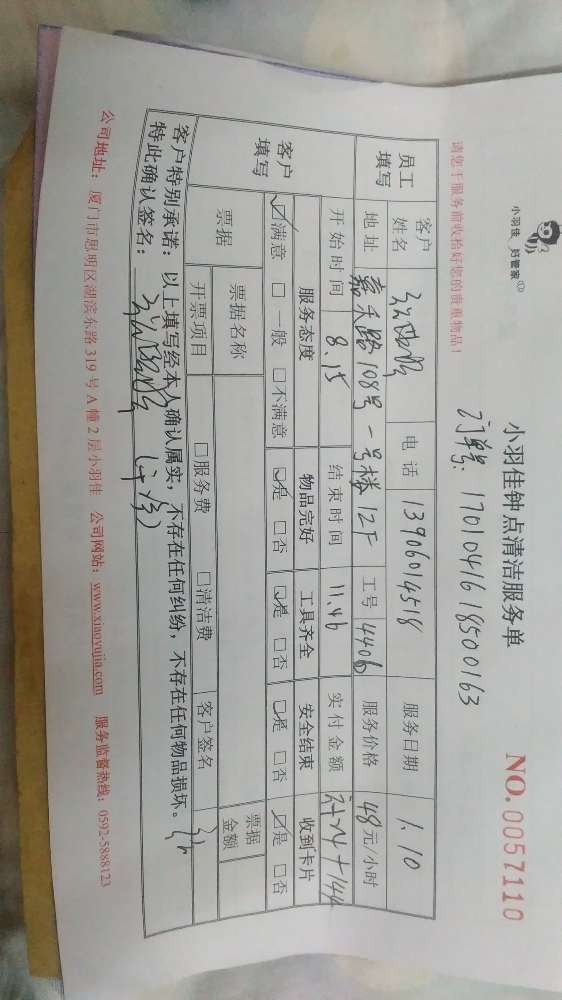 小羽佳 好管家®
小羽佳钟点清洁服务单
NO. 0057110
请您于服务前收拾好您的贵重物品！
订单号: 17010416 18500163
员工填写
客户姓名 电话 13906014518 服务日期 1.10
地址 嘉禾路108号一号楼12F 工号 4406 服务价格 48元/小时
开始时间 8.15 结束时间 11.46 实付金额
客户填写
服务态度 物品完好 工具齐全 安全结束 收到卡片
☑满意 □一般 □不满意 ☑是 □否 ☑是 □否 ☑是 □否 ☑是 □否
票据 票据名称 票据金额
开票项目 □服务费 □清洁费 客户签名
客户特别承诺：以上填写经本人确认属实，不存在任何纠纷，不存在任何物品损坏。
特此确认签名：
公司地址：厦门市思明区湖滨东路319号A幢2层小羽佳 公司网站：www.xiaoyujia.com 服务监督热线：0592-5888123